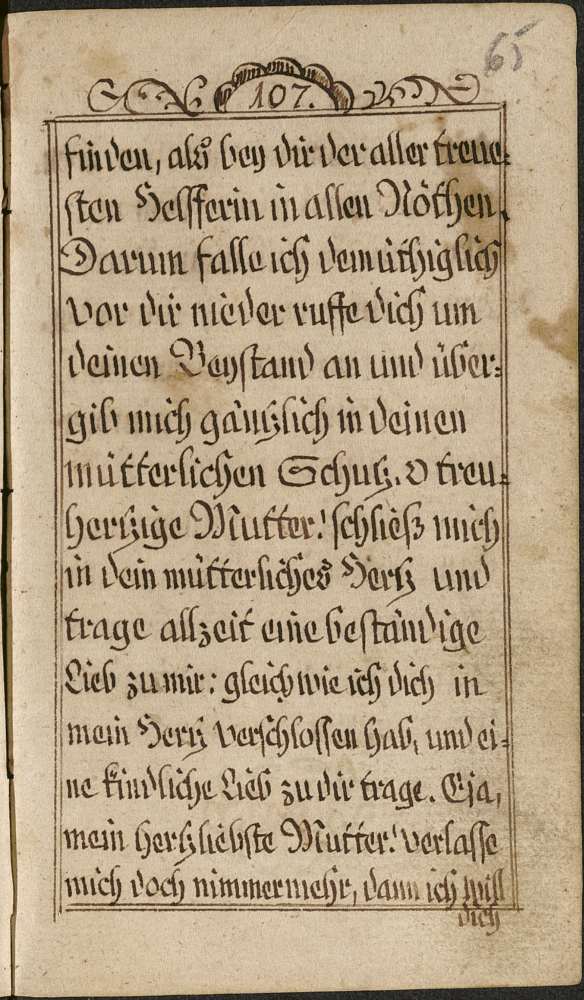 65
107.
finden, als bey dir der aller treue⸗
sten Helfferin in allen Nöthen.
Darum falle ich demüthiglich
vor dir nieder ruffe dich um
deinen Beystand an und über⸗
gib mich gäntzlich in deinen
mütterlichen Schutz. O treu⸗
hertzige Mutter! schließ mich
in dein mütterliches Hertz und
trage allzeit eine beständige
Lieb zu mir: gleich wie ich dich in
mein Hertz verschlossen hab, und ei⸗
ne kindliche Lieb zu dir trage. Eja,
mein hertzliebste Mutter! verlasse
mich doch nimmermehr, dann ich will
dich